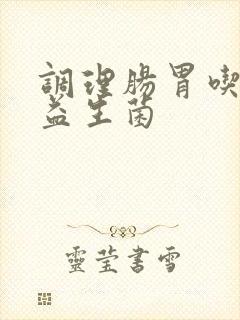 調理腸胃喫
益生菌
靈莹書雪